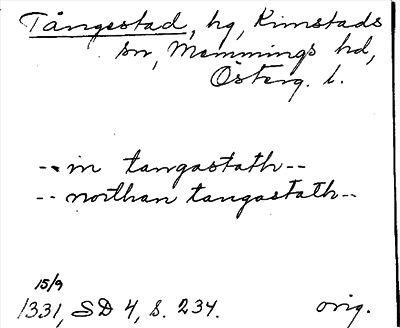 Tångestad, hg, Kimstads
sn, Memmings hd,
Österg. l.
--in tangastath--
--northan tangastath--
15/9
1331, SD 4, s. 234. orig.